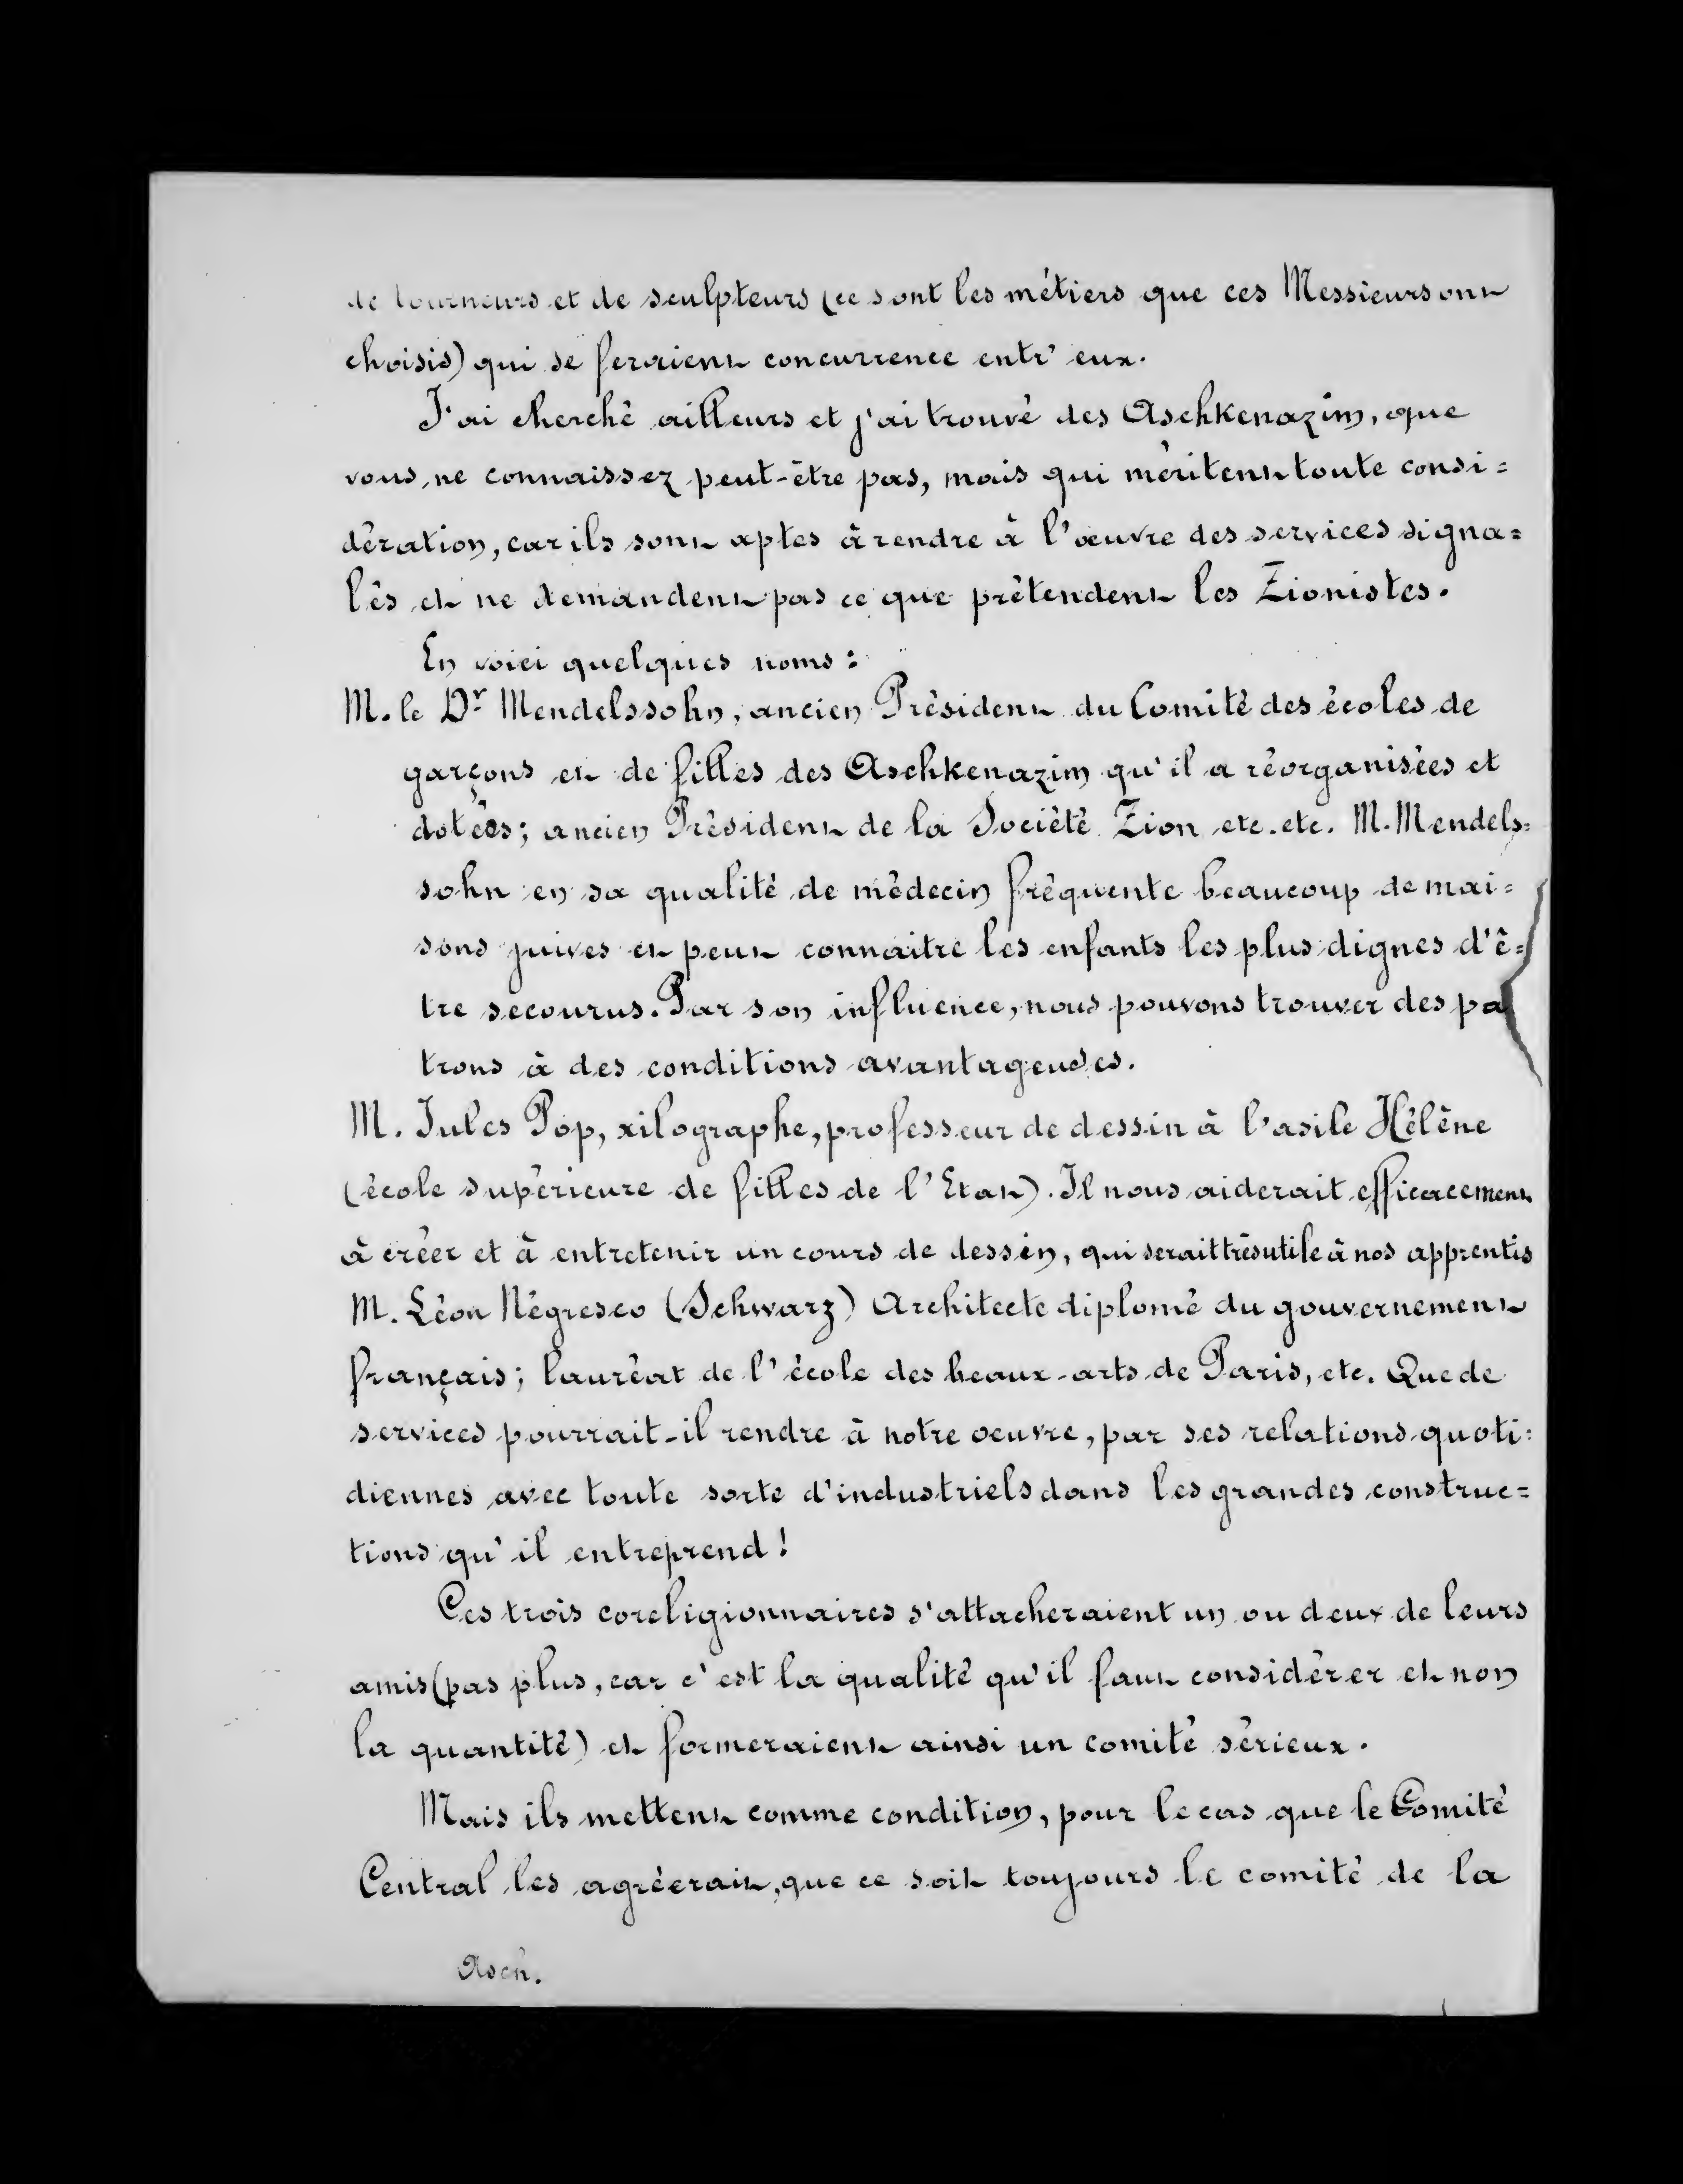 de tourneurs et de sculpteurs (ce sont les métiers que ces Messieurs ont
choisis) qui se feraient concurrence entr' eux.
J'ai cherché ailleurs et j'ai trouvé des Aschkenazim, que
vous ne connaissez peut-être pas, mais qui méritent toute consi=
dération, car ils sont aptes à rendre à l'œuvre des services signa=
lés et ne demandent pas ce que prétendent les Zionistes.
En voici quelques noms:
M. le Dr Mendelssohn, ancien Président du Comité des écoles de
garçons et de filles des Aschkenazim qu'il a réorganisées et
dotées; ancien Président de la Société Zion etc. etc. M. Mendels=
sohn en sa qualité de médecin fréquente beaucoup de mai=
sons juives et peut connaitre les enfants les plus dignes d'ê=
tre secourus. Par son influence, nous pouvons trouver des pa
trons à des conditions avantageuses.
M. Jules Pop, xilographe, professeur de dessin à l'asile Hélène
(école supérieure de filles de l'Etat). Il nous aiderait efficacement
à créer et à entretenir un cours de dessin, qui serait très utile à nos apprentis
M. Léon Négresco (Schwarz) Architecte diplomé du gouvernement
français; lauréat de l'école des beaux-arts de Paris, etc. Que de
services pourrait-il rendre à notre oeuvre, par ses relations quoti=
diennes avec toute sorte d'industriels dans les grandes construc=
tions qu'il entreprend!
Ces trois coreligionnaires s'attacheraient un ou deux de leurs
amis (pas plus, car c'est la qualité qu'il faut considérer et non
la quantité) et formeraient ainsi un comité sérieux.
Mais ils mettent comme condition, pour le cas que le Comité
Central les agréerait, que ce soit toujours le comité de la